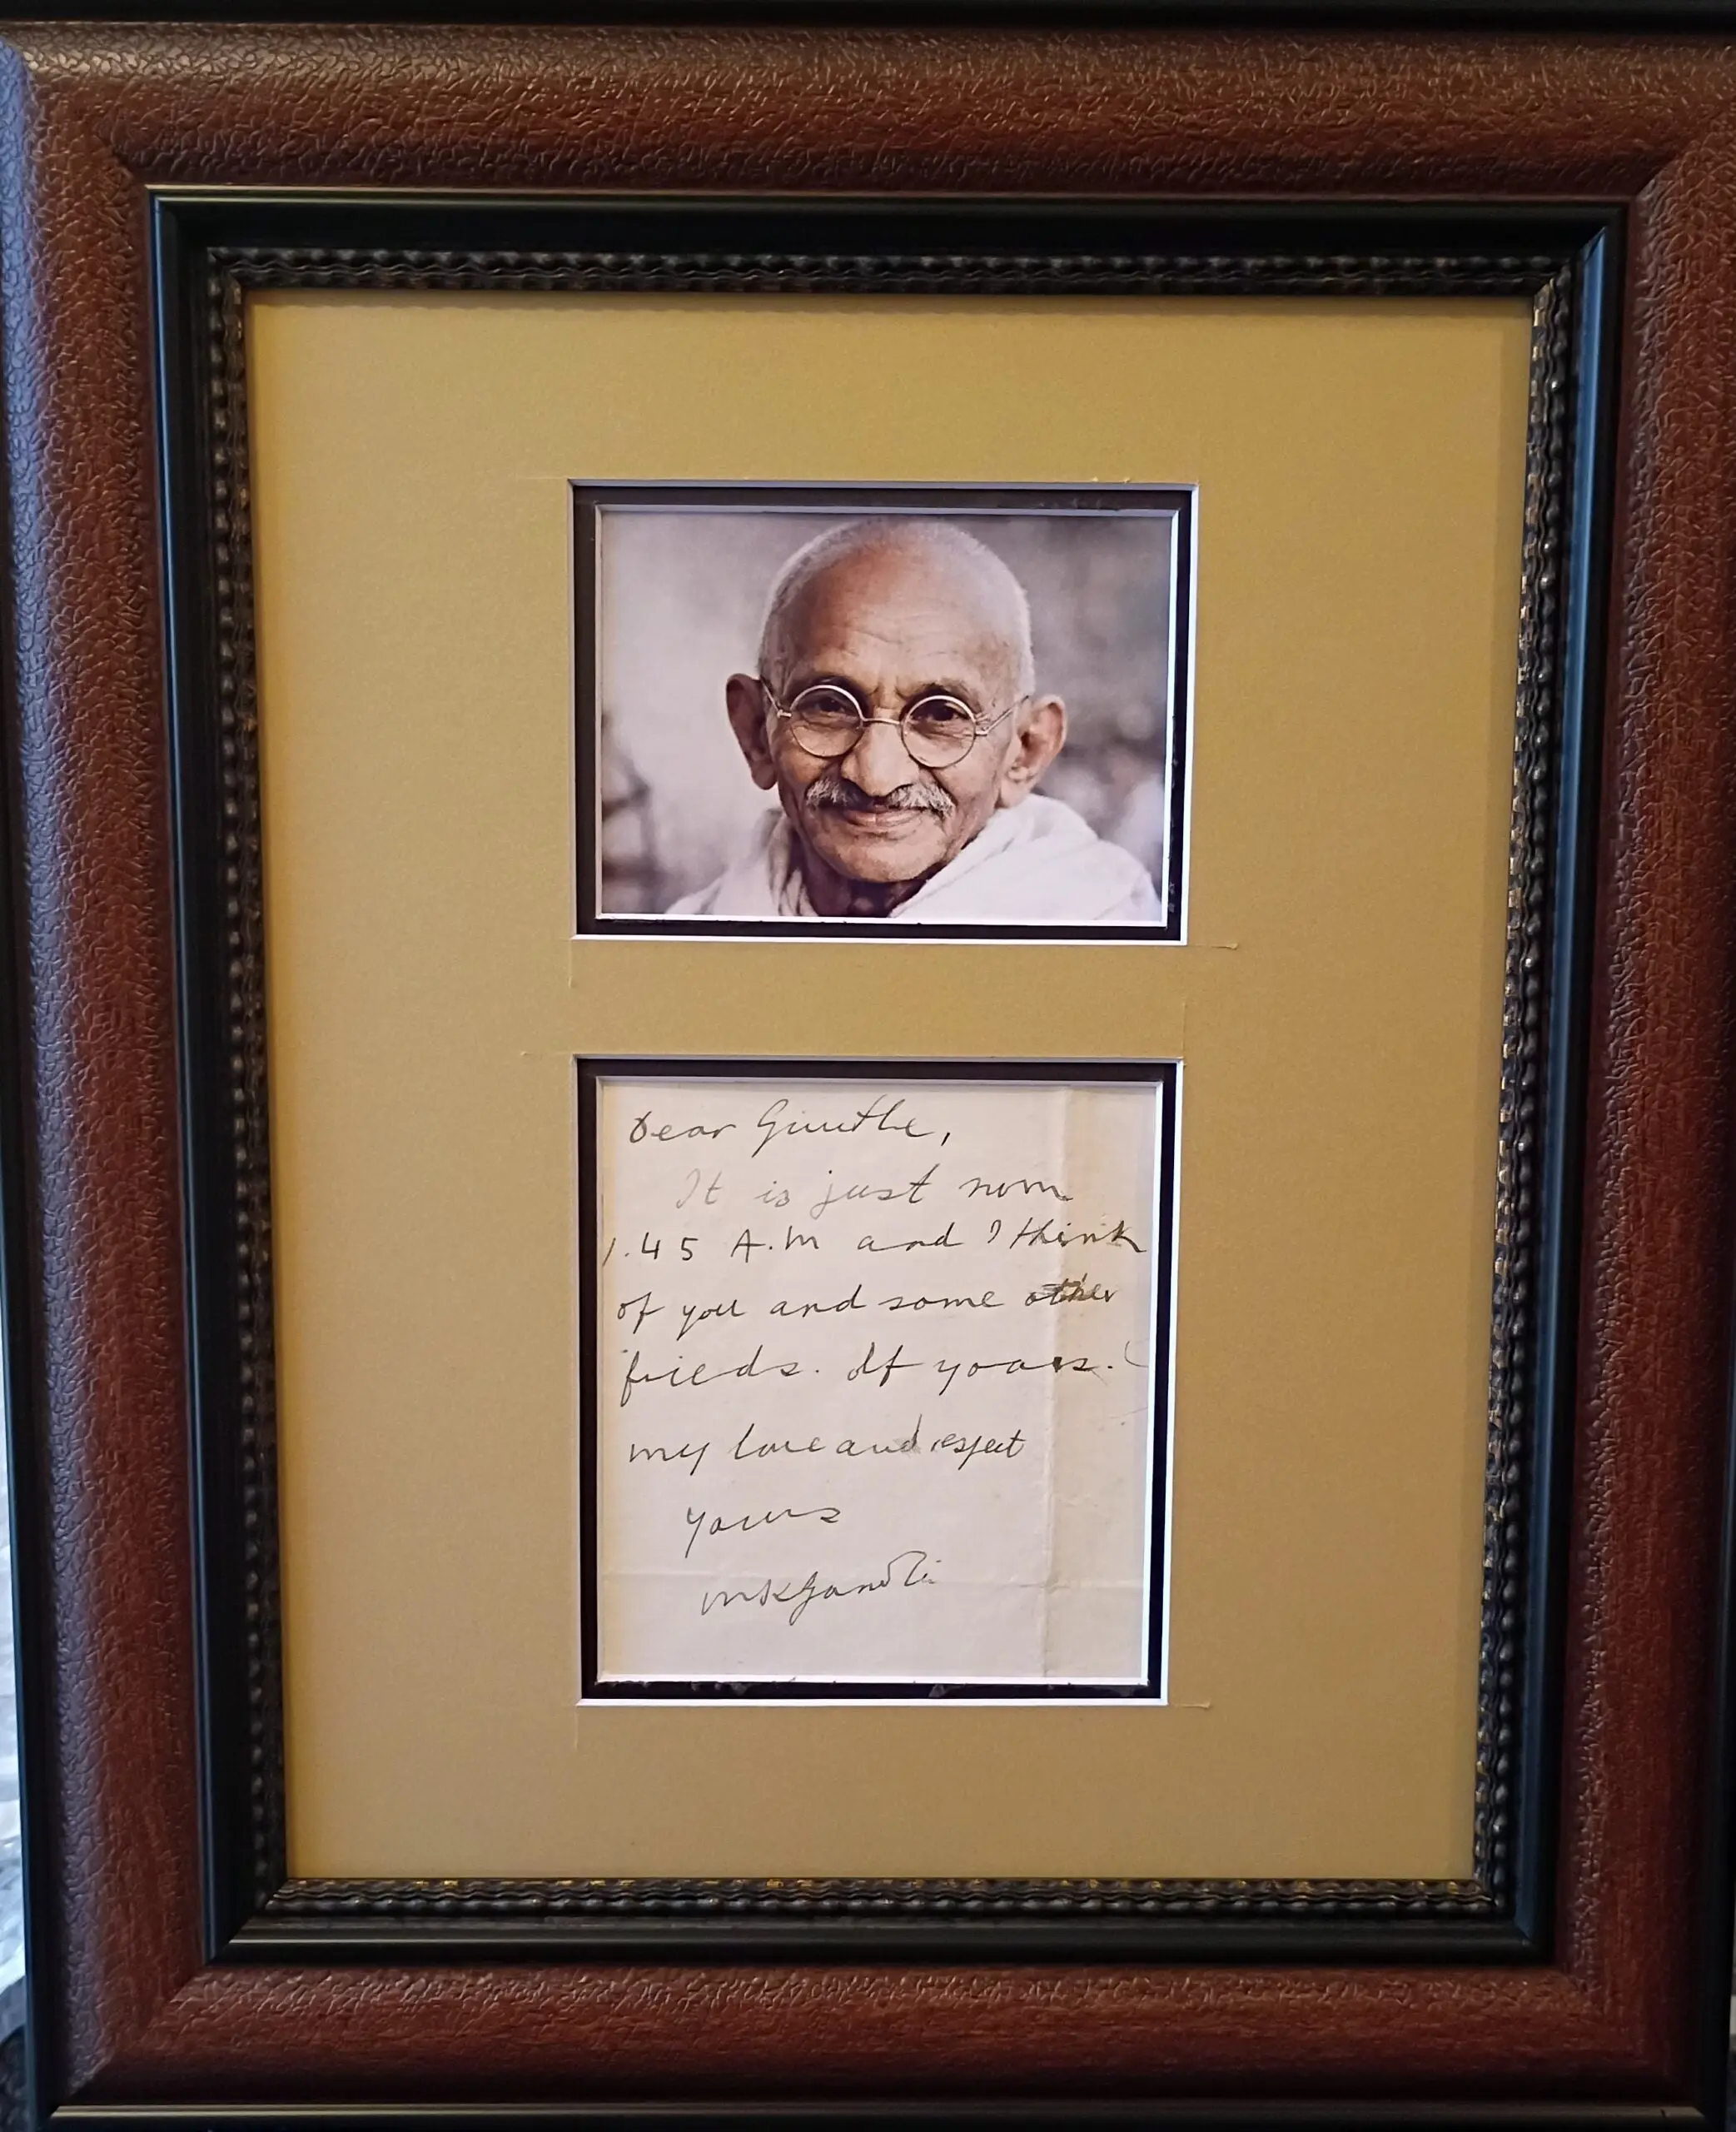 Dear Gurudev,
It is just now
1.45 A.M and I think
of you and some other
frieds. If your
my love and respect
yours
mkgandhi